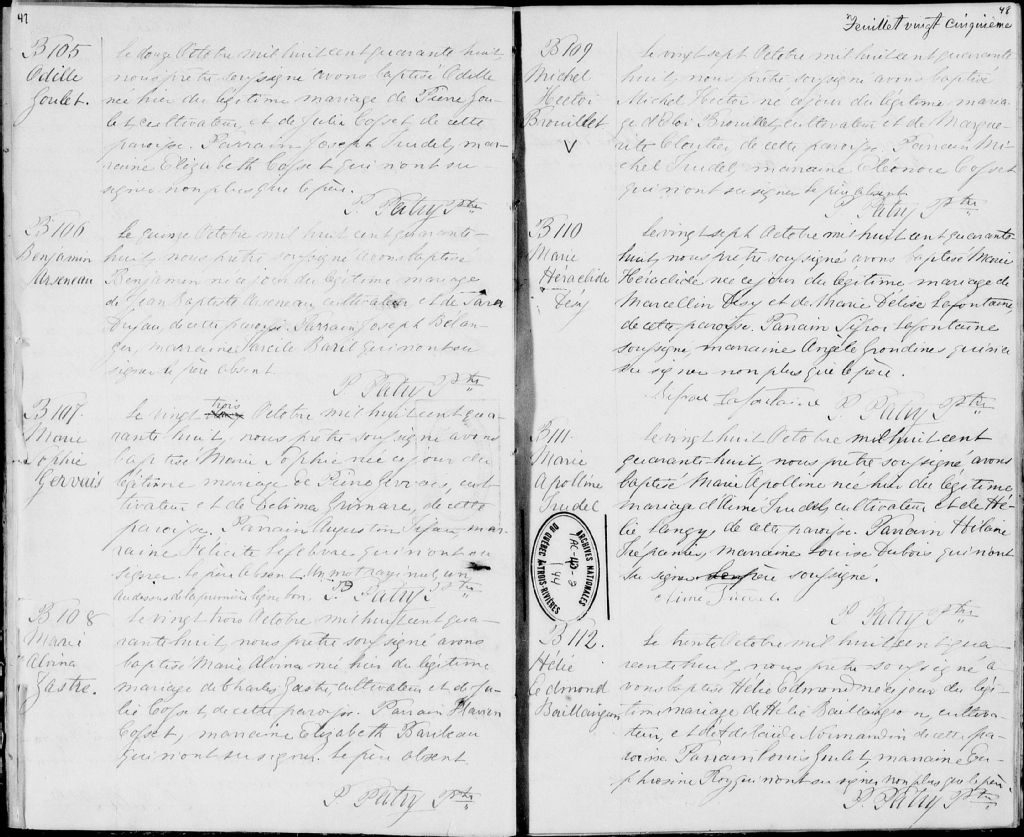 47
B 105
Odille
Goulet.
Le douze Octobre mil huit cent quarante huit,
nous prêtre soussigné avons baptisé Odille
née hier du légitime mariage de Pierre Gou-
let, cultivateur et de Julie Cosset de cette
paroisse. Parrain Joseph Trudel, mar-
raine Elizabeth Cosset qui n'ont su
signer non plus que le père.
P. Patry Ptre
B 106
Benjamin
Arseneau
Le quinze Octobre mil huit cent quarante-
huit, nous prêtre soussigné avons baptisé
Benjamin né ce jour du légitime mariage
de Jean Baptiste Arseneau, cultivateur et de Sara
de cette paroisse. Parrain Joseph Bélan-
ger, marraine Baril qui n'ont su
signer le père absent
P. Patry Ptre
B 107.
Marie
Sophie
Gervais
Le vingt trois Octobre mil huit cent qua-
rante huit, nous prêtre soussigné avons
baptisé Marie Sophie née ce jour du
légitime mariage de Pierre Gervais, cul-
tivateur et de de cette
paroisse. Parrain Augustin mar-
raine Félicité Lefebvre qui n'ont su
signer. le père absent. Un mot rayé nul, un
au dessus de la première ligne bon. P. Patry Ptre
B 108
Marie
Alvina
Le vingt trois Octobre mil huit cent qua-
rante huit, nous prêtre soussigné avons
baptisé Marie Alvina née hier du légitime
mariage de Charles cultivateur et de Ju-
lie Cosset, de cette paroisse. Parrain Flavien
Cosset, marraine Elizabeth Baribeau
qui n'ont su signer le père absent
P. Patry Ptre
48
Feuillet vingt cinquième
B 109
Michel
Hector
Brouillet
Le vingt sept Octobre mil huit cent quarante
huit, nous prêtre soussigné avons baptisé
Michel Hector né ce jour du légitime maria-
ge d'Eloi Brouillet, cultivateur et de Margue-
rite Cloutier de cette paroisse. Parrain Mi-
chel Trudel, marraine Eléonore Cosset
qui n'ont su signer le père absent
P. Patry Ptre
B 110
Marie
Héraclide
Désy
Le vingt sept Octobre mil huit cent quarante
huit, nous prêtre soussigné avons baptisé Marie
Héraclide née ce jour du légitime mariage de
Marcellin Désy et de Marie Délise Lafontaine,
de cette paroisse. Parrain Lafontaine
soussigné, marraine Angèle Grondines qui n'a
su signer non plus que le père.
Lafontaine P. Patry Ptre
B 111
Marie
Apolline
Trudel
Le vingt huit Octobre mil huit cent
quarante-huit nous prêtre soussigné avons
baptisé Marie Apolline née hier du légitime
mariage d'Aimé Trudel, cultivateur et de Hé-
lie Langy de cette paroisse. Parrain Hilaire
Trépanier, marraine Louise Dubois qui n'ont
su signer père soussigné.
Aimé Trudel
P. Patry Ptre
ARCHIVES NATIONALES
DU QUÉBEC À TROIS-RIVIÈRES
B 112.
Hélie
Edmond
Baillargeon
Le trente Octobre mil huit cent qua-
rante huit, nous prêtre soussigné a-
vons baptisé Hélie Edmond né ce jour du légi-
time mariage de Hélie Baillargeon, cultiva-
teur, et d'Adélaïde Normandin de cette pa-
roisse. Parrain Louis Goulet, marraine Eu-
phrosine Roy qui n'ont su signer non plus que le père
P. Patry Ptre